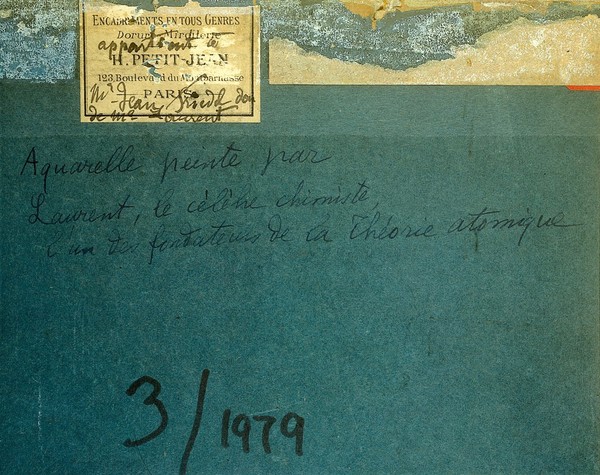 ENCADREMENTS EN TOUS GENRES
Dorure Miroiterie
appartient à
H. PETIT-JEAN
123, Boulevard du Montparnasse
PARIS
Mr Jean don
de Mr Laurent
Aquarelle peinte par
Laurent, le célèbre chimiste,
l'un des fondateurs de la Théorie atomique
3/1979